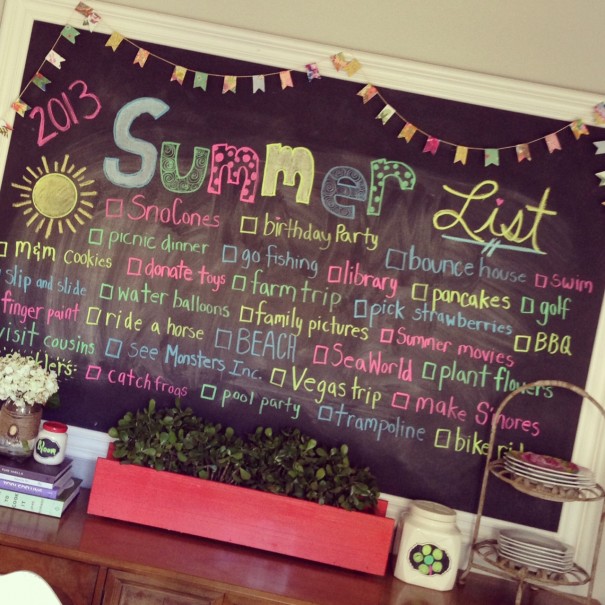 2013 Summer List
☐ SnoCones ☐ birthday Party ☐ bounce house ☐ swim
☐ picnic dinner ☐ go fishing ☐ library ☐ pancakes ☐ golf
☐ m&m cookies ☐ donate toys ☐ farm trip ☐ pick strawberries ☐ BBQ
slip and slide ☐ water balloons ☐ family pictures ☐ Summer movies
finger paint ☐ ride a horse ☐ BEACH ☐ SeaWorld ☐ plant flowers
visit cousins ☐ see Monsters Inc. ☐ Vegas trip ☐ make S'mores
☐ catch frogs ☐ pool party ☐ trampoline ☐ bike ride